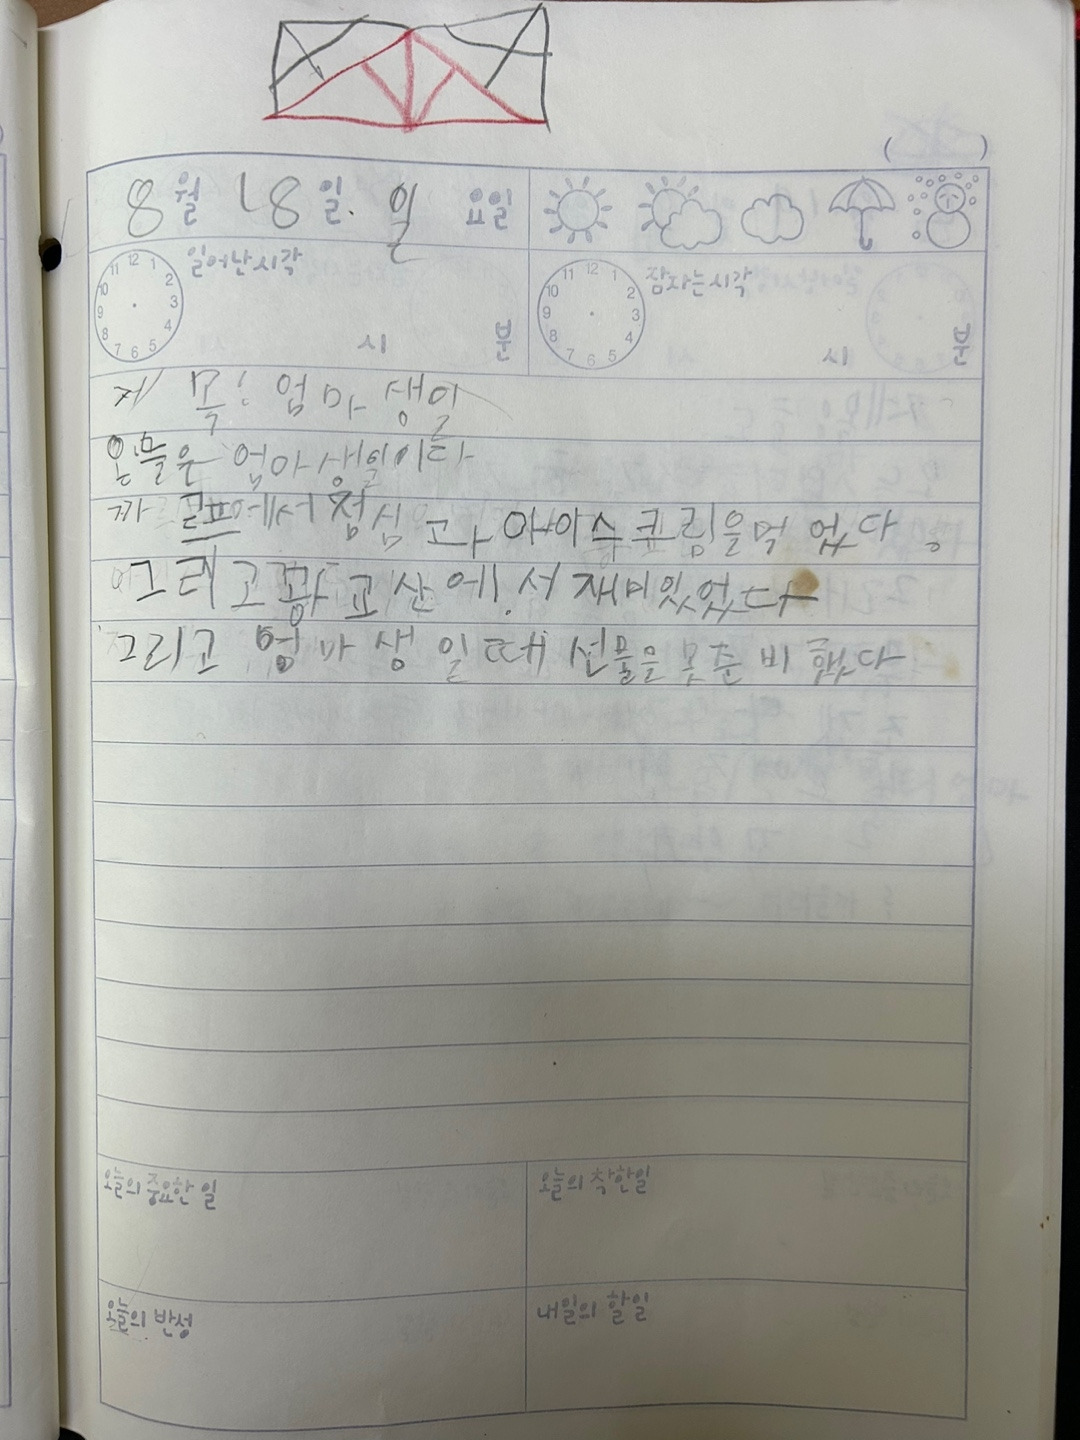 ( )
8월 18일. 일 요일
일어난시각 시 분 잠자는시각 시 분
12 1 2 3 4 5 6 7 8 9 10 11
12 1 2 3 4 5 6 7 8 9 10 11
제 목: 엄마 생일
오늘은 엄마생일이다
까르프에서 점심 고나 아이스큐림을먹 었다.
그리고 광교산에.서 재미있었다
그리고 엄마 생일때 선물을 못준비 했다
오늘의 중요한 일 오늘의 착한일
오늘의 반성 내일의 할일